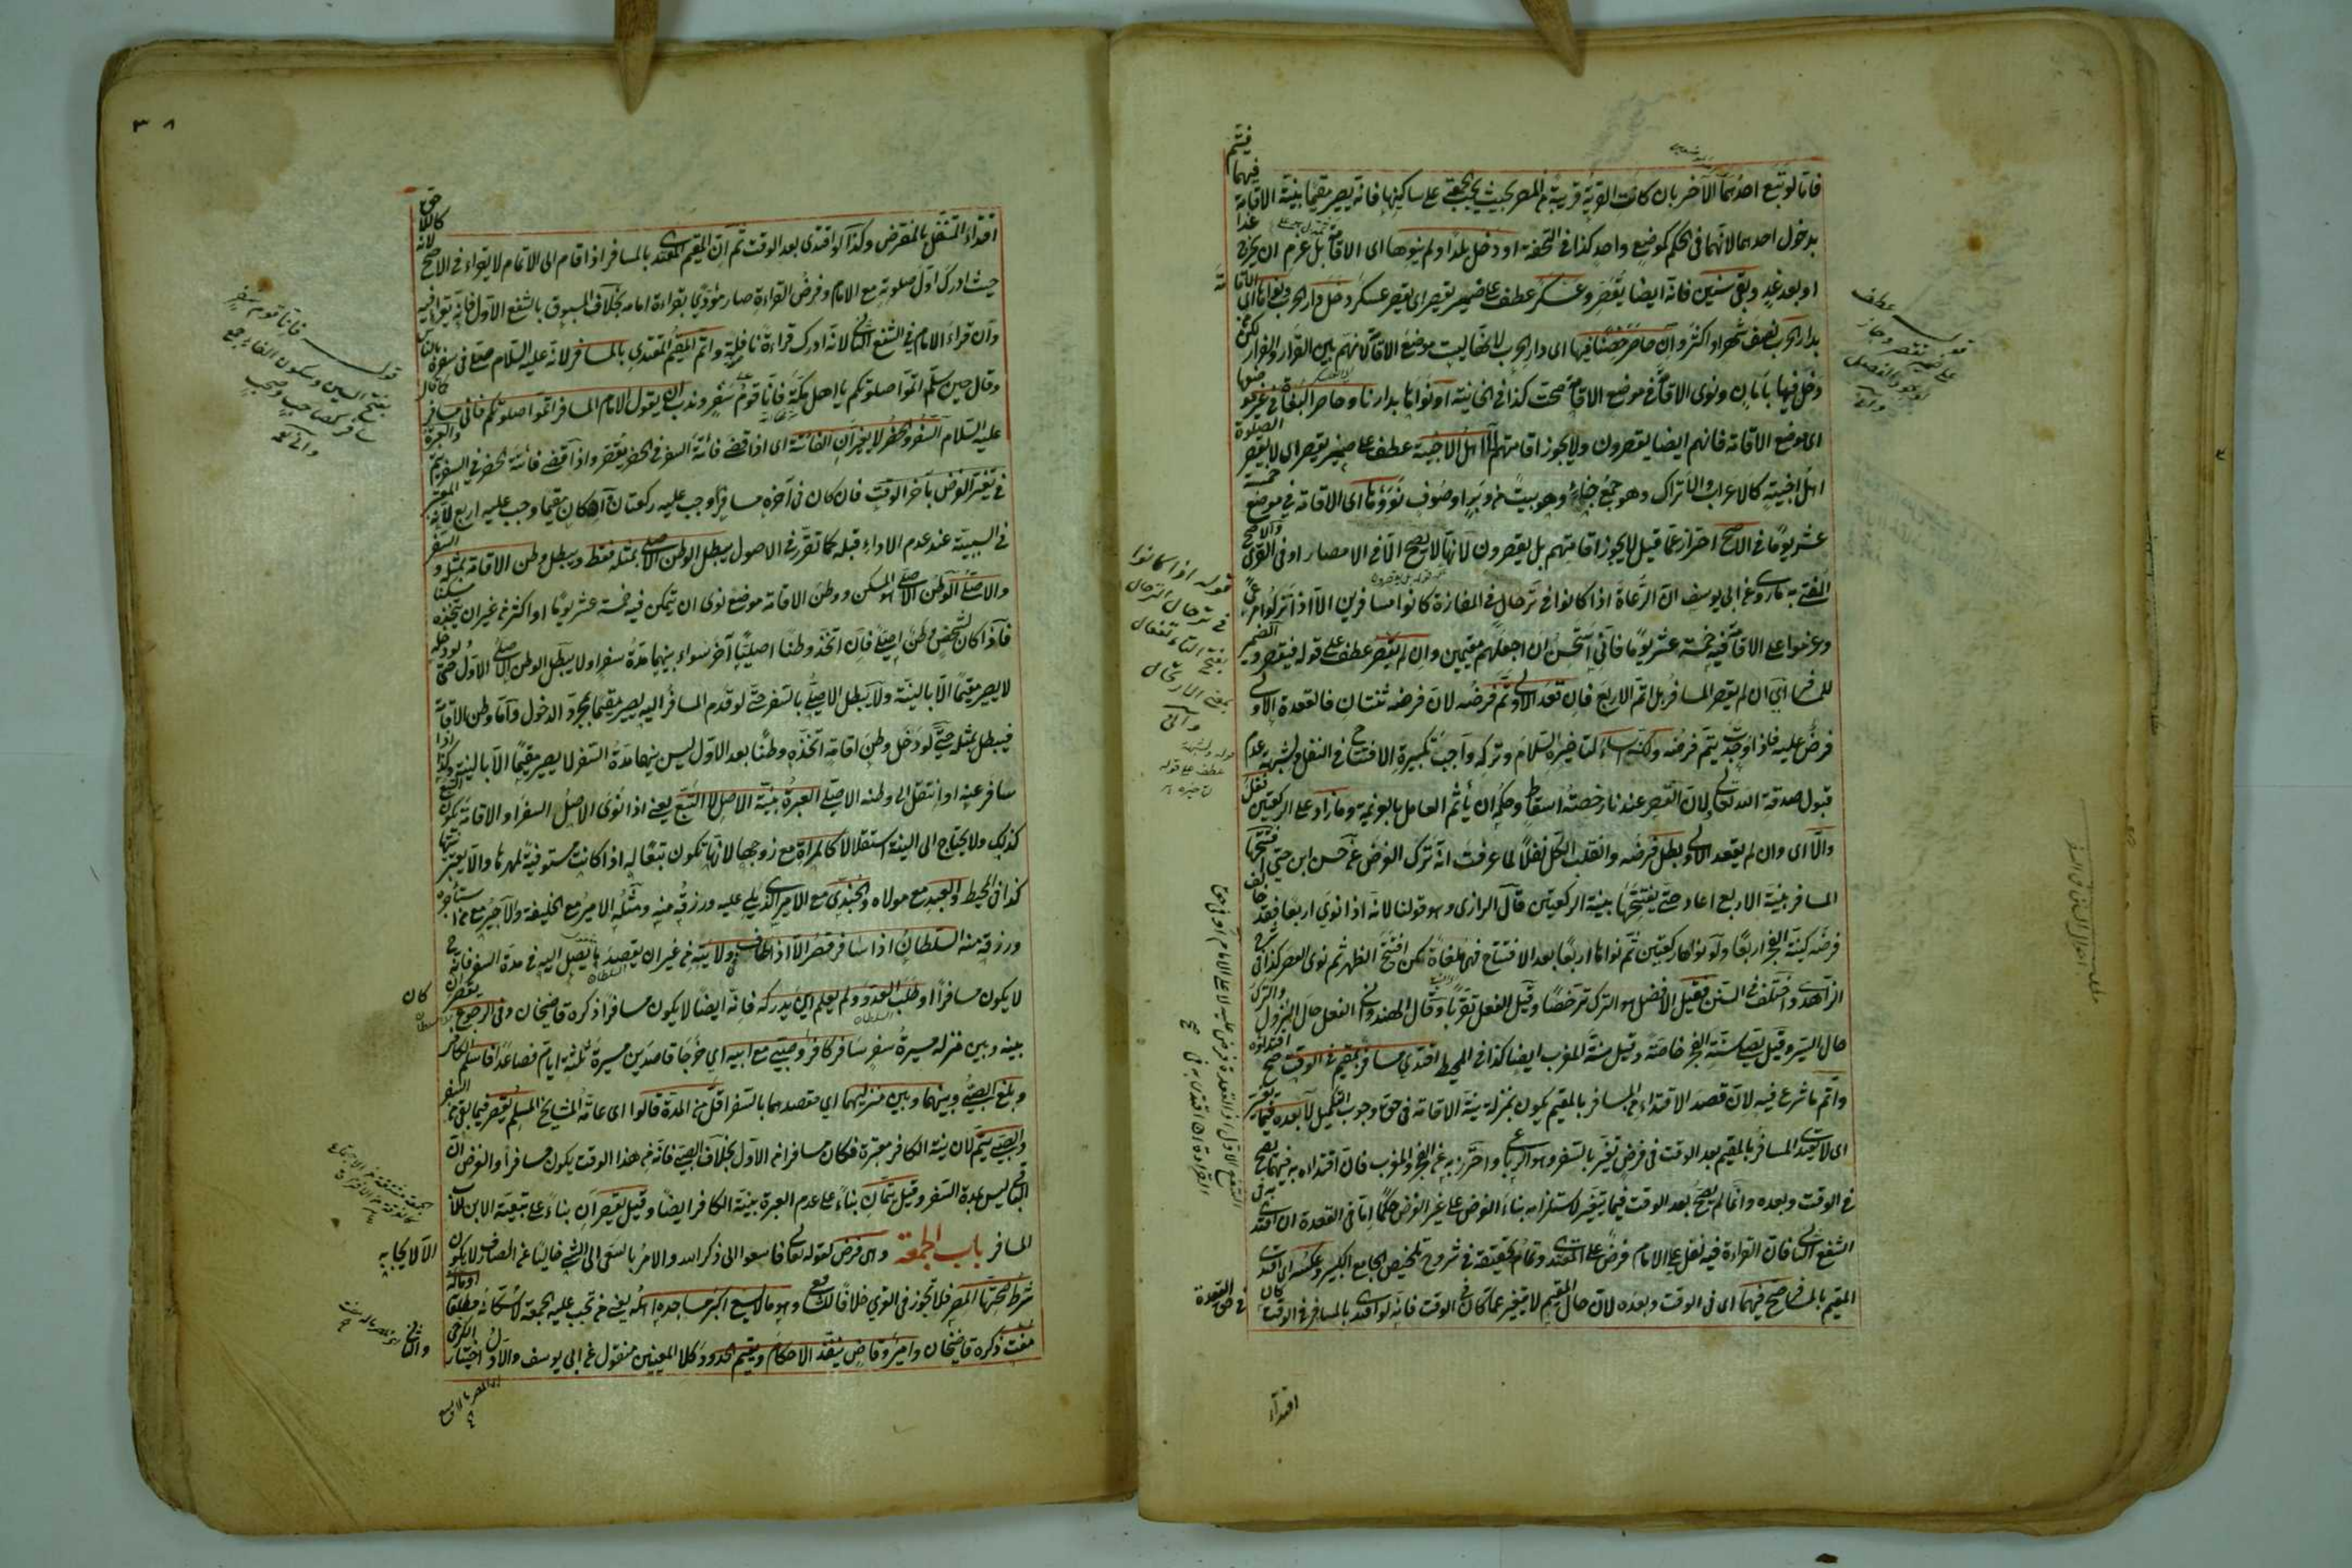 فاما لو تبع احدهما الآخر بان كانت القرية قريبة من المصر بحيث يجب الجمعة على ساكنها فانه يصير مقيما بنية الاقامة فيهما فيتم
بدخول احدهما لانهما في الحكم كموضع واحد كذا في التحفة او دخل بلدا ولم ينوها اى الاقامة بل عزم ان يخرج غدا
او بعد غد وبقى سنين فانه ايضا يقصر وعسكر عطف على ضمير يقصر اى يقصر عسكر دخل دار الحرب ونواها اى الاقامة
بدار الحرب نصف شهر او اكثر وان حاصر حصنا فيها اى دار الحرب لانها ليست موضع الاقامة لانهم بين القرار والفرار لكن من
دخل فيها بامان ونوى الاقامة في موضع الاقامة صحت كذا في الخانية او نواها بدارنا وحاصر البغاة في غير
اى موضع الاقامة فانهم ايضا يقصرون ولا يجوز اقامتهم لا اهل الاخبية عطف على ضمير يقصر اى لا يقصر الصلوة
اهل اخبية كالاعراب والاتراك وهو جمع خباء وهو بيت من وبر او صوف نووها اى الاقامة في موضع خمسة
عشر يوما في الاصح احتراز عما قيل لا يجوز اقامتهم بل يقصرون لانها لا يصح الا في الامصار او في القرى والاصح
المفتى به ما روى عن ابى يوسف ان الرعاة اذا كانوا في ترحال في المفازة كانوا مسافرين الا اذا تركوا مرعى
وعزموا على الاقامة فيه خمسة عشر يوما فانى استحسن ان اجعلهم مقيمين وان لم يقصر عطف على قوله فيقصر والضمير
للمسافر اى ان لم يقصر المسافر بل اتم الاربع فان قعد الاولى تم فرضه لان فرضه ثنتان فالقعدة الاولى
فرض عليه فاذا وجدت يتم فرضه ولكنه اساء لتاخيره السلام وتركه واجب تكبيرة الافتتاح في النفل ولشبهة عدم
قبول صدقة الله تعالى لان القصر عندنا رخصة اسقاط وحكمه ان يأثم العامل بالعزيمة وما زاد على الركعتين نفل
والا اى وان لم يقعد الاولى بطل فرضه وانقلب الكل نفلا لما عرفت انه ترك الفرض عن حسن ابن حى افتتحها
المسافر بنية الاربع اعاد حتى يفتتحها بنية الركعتين قال الرازى وهو قولنا لانه اذا نوى اربعا فقد خالف
فرضه كنية الفجر اربعا ولو نواها ركعتين ثم نواها اربعا بعد الافتتاح فهى ملغاة كمن افتتح الظهر ثم نوى العصر كذا في شرح
الزاهدى واختلف في السنن فقيل الافضل هو الترك ترخصا وقيل الفعل تقربا وقال الهندوانى الفعل حال النزول والترك
حال السير وقيل يصلى سنة الفجر خاصة وقيل سنة المغرب ايضا كذا في المحيط اقتدى مسافر بمقيم في الوقت صح اقتداؤه
واتم ما شرع فيه لان قصد الاقتداء من المسافر بالمقيم يكون بمنزلة نية الاقامة في حق وجوب التكميل لا بعده فيما يتغير
اى لا يقتدى المسافر بالمقيم بعد الوقت في فرض تغير بالسفر وهو الرباعى واحترز به عن الفجر والمغرب فان اقتداءه به فيهما يصح
في الوقت وبعده وانما لم يصح بعد الوقت فيما يتغير لاستلزامه بناء الفرض على غير الفرض حكما اما في القعدة ان اقتدى به في
الشفع الثانى فان القراءة فيه نفل على الامام فرض على المقتدى وتمام تحقيقه في شروح تلخيص الجامع الكبير وعكسه اى اقتدى
المقيم بالمسافر صح فيهما اى في الوقت وبعده لان حال المقيم لا يتغير عما كان في الوقت فانه لو اقتدى بالمسافر في الوقت كان
في حق القعدة
اقتداء
قوله عطف
على ضمير يقصر وجاز
لوجود الفصل
وانى
قوله اذا كانوا
في ترحال الترحال
بفتح التاء تفعال
بمعنى الارتحال
وانى
قوله ولشبهة
عطف على قوله
لتاخيره
٣٨
اقتداء المتنفل بالمفترض وكذا لو اقتدى بعد الوقت ثم ان المقيم المقتدى بالمسافر اذا قام الى الاتمام لا يقرأ في الاصح لانه كاللاحق
حيث ادرك اول صلوته مع الامام وفرض القراءة صار مؤدى بقراءة امامه بخلاف المسبوق بالشفع الاول فانه يقرأ فيه
وان قرأ الامام في الشفع الثانى لانه ادرك قراءة نافلة واتم المقيم المقتدى بالمسافر لانه عليه السلام صلى في سفره بالناس
وقال حين سلم اتموا صلوتكم يا اهل مكة فانا قوم سفر وندب ان يقول الامام المسافر اتموا صلوتكم فانى مسافر كما قال
عليه السلام السفر والحضر لا يغيران الفائتة اى اذا قضى فائتة السفر في الحضر يقصر واذا قضى فائتة الحضر في السفر يتم والعبرة
في تغير الفرض بآخر الوقت فان كان في آخره مسافرا وجب عليه ركعتان وان كان مقيما وجب عليه اربع لانه المعتبر
في السببية عند عدم الاداء قبله كما تقرر في الاصول يبطل الوطن الاصلى بمثله فقط ويبطل وطن الاقامة بمثله والسفر
والاصلى الوطن الاصلى هو المسكن ووطن الاقامة موضع نوى ان يتمكن فيه خمسة عشر يوما او اكثر من غير ان يتخذه مسكنا
فاذا كان لشخص وطن اصلى فان اتخذ وطنا اصليا آخر سواء بينهما مدة سفر او لا يبطل الوطن الاصلى الاول حتى لو دخله
لا يصير مقيما الا بالنية ولا يبطل الاصلى بالسفر حتى لو قدم المسافر اليه يصير مقيما بمجرد الدخول واما وطن الاقامة
فيبطل بمثله حتى لو دخل وطن اقامة اتخذه وطنا بعد الاول ليس بينهما مدة السفر لا يصير مقيما الا بالنية وكذا اذا
سافر عنه او انتقل الى وطنه الاصلى العبرة بنية الاصل لا التبع يعنى اذا نوى الاصل السفر او الاقامة يكون التبع
كذلك ولا يحتاج الى النية استقلالا كالمرأة مع زوجها لانها تكون تبعا له اذا كانت مستوفية لمهرها والا يعتبر نيتها
كذا في المحيط والعبد مع مولاه والجندى مع الامير الذى يلى عليه ورزقه منه ومثله الامير مع الخليفة والاجير مع مستأجره
ورزقه منه السلطان اذا سافر قصر الا اذا طاف في ولايته من غير ان يقصد ما يصل اليه في مدة السفر فانه ح
لا يكون مسافرا او طلب العدو ولم يعلم اين يدركه فانه ايضا لا يكون مسافرا ذكره قاضيخان وفى الرجوع يقصر ان كان
بينه وبين منزله مسيرة سفر سافر كافر وصبى مع ابيه اى خرجا قاصدين مسيرة ثلثة ايام فصاعدا فاسلم الكافر
وبلغ الصبى وبينهما وبين منزليهما اى مقصدهما بالسفر اقل من المدة قالوا اى عامة المشايخ المسلم يقصر فيما بقى من السفر
والصبى يتم لان نية الكافر معتبرة فكان مسافرا من الاول بخلاف الصبى فانه من هذا الوقت يكون مسافرا والفرض ان
الباقى ليس بمدة السفر وقيل يتمان بناء على عدم العبرة بنية الكافر ايضا وقيل يقصران بناء على تبعية الابن للاب
المسافر باب الجمعة وهى فرض لقوله تعالى فاسعوا الى ذكر الله والامر بالسعى الى الشئ خاليا عن الصارف لا يكون الا لايجابه
شرط صحتها المصر فلا تجوز في القرى خلافا للشافعى وهو ما لا يسع اكبر مساجده اهله يعنى من تجب عليه الجمعة لا سكانه مطلقا
مفت ذكره قاضيخان وامير وقاض ينفذ الاحكام ويقيم الحدود كلا المعنيين منقول عن ابى يوسف والاول اختيار الكرخى
قوله فانا قوم سفر
بفتح السين وسكون الفاء جمع
سافر كصاحب وصحب
وانى